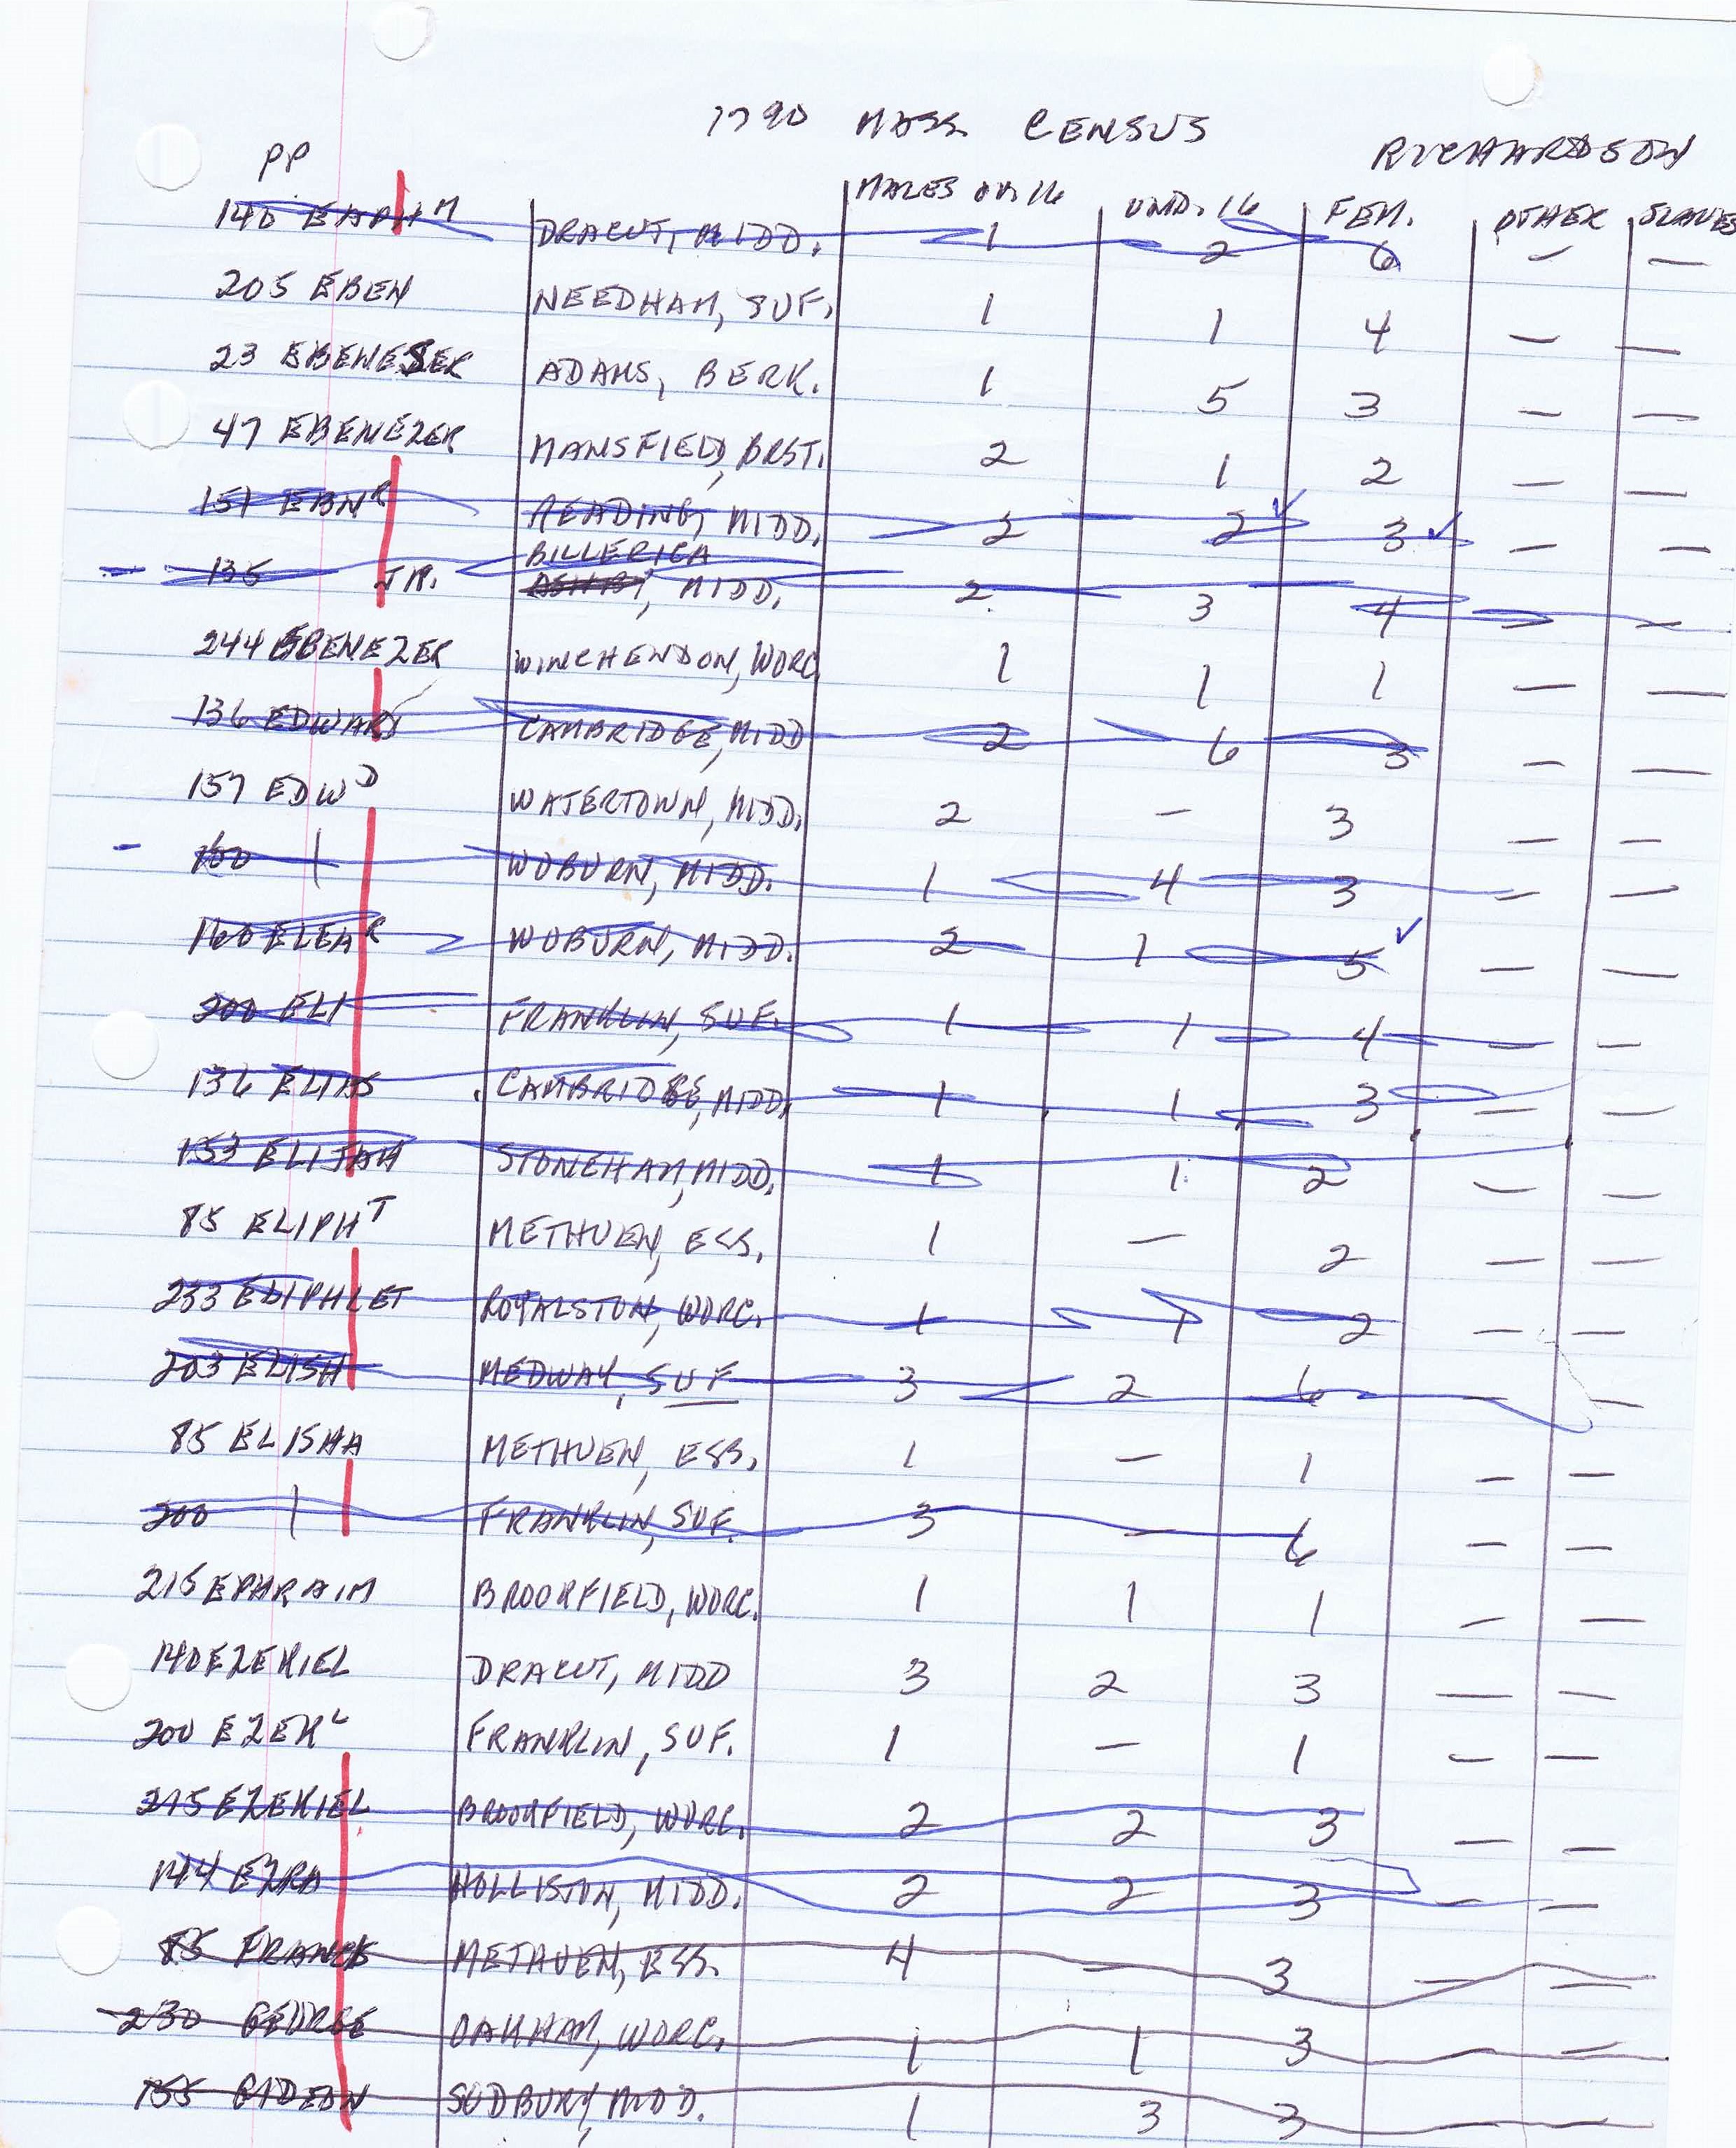 1790 MASS CENSUS RICHARDSON
PP MALES OV. 16 UND. 16 FEM. OTHER SLAVES
140 EAPH M DRACUT, MIDD. 1 2 6 — —
205 EBEN NEEDHAM, SUF. 1 1 4 — —
23 EBENESER ADAMS, BERK. 1 5 3 — —
47 EBENEZER MANSFIELD, BRST. 2 1 2 — —
151 EBN R READING, MIDD. 2 2 ✓ 3 ✓ — —
BILLERICA
- 135 JR. ASHBY, MIDD. 2 3 4 — —
244 EBENEZER WINCHENDON, WORC 1 1 1 — —
136 EDWARD CAMBRIDGE, MIDD 2 6 3 — —
157 EDW D WATERTOWN, MIDD. 2 — 3 — —
- 160 | WOBURN, MIDD. 1 4 3 — —
160 ELEA R WOBURN, MIDD. 2 1 5 ✓ — —
200 ELI FRANKLIN, SUF. 1 1 4 — —
136 ELIAS CAMBRIDGE, MIDD. 1 1 3 — —
153 ELIJAH STONEHAM, MIDD. 1 1 2 — —
85 ELIPH T METHUEN, ESS. 1 — 2 — —
233 ELIPHLET ROYALSTON, WORC. 1 1 2 — —
203 ELISH MEDWAY, SUF 3 2 6 — —
85 ELISHA METHUEN, ESS. 1 — 1 — —
200 | FRANKLIN, SUF. 3 — 6 — —
215 EPHRAIM BROOKFIELD, WORC. 1 1 1 — —
140 EZEKIEL DRACUT, MIDD 3 2 3 — —
200 EZEK L FRANKLIN, SUF. 1 — 1 — —
215 EZEKIEL BROOKFIELD, WORC. 2 2 3 — —
144 EZRA HOLLISTON, MIDD. 2 2 3 — —
85 FRANCIS METHUEN, ESS. 4 — 3 — —
230 GEORGE OAKHAM, WORC. 1 1 3 — —
155 GIDEON SUDBURY, MIDD. 1 3 3 — —